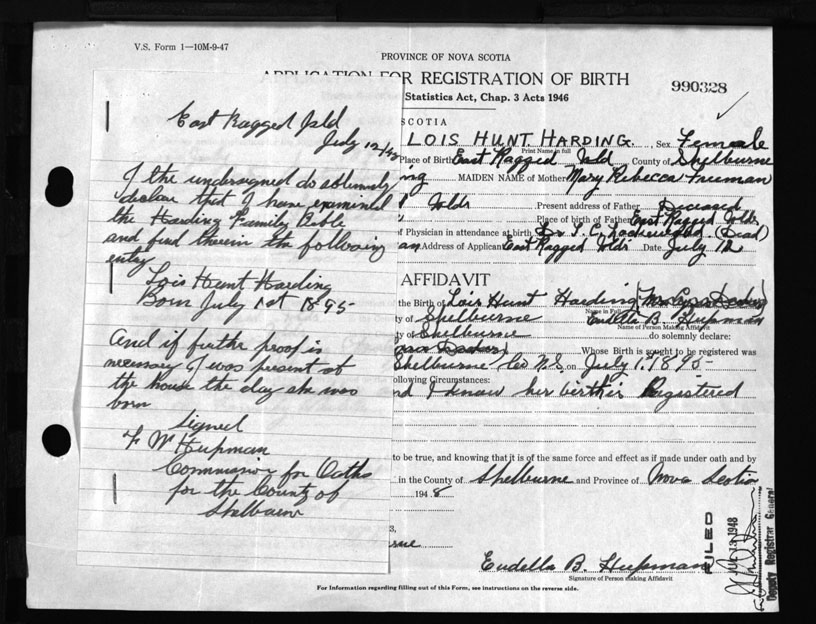 V.S. Form 1—10M-9-47
PROVINCE OF NOVA SCOTIA
APPLICATION FOR REGISTRATION OF BIRTH
990328
Statistics Act, Chap. 3 Acts 1946
East Ragged Isld
July 12/48
I the undersigned do solemnly
declare that I have examined
the Harding Family Bible
and find therein the following
entry
Lois Hunt Harding
Born July 1st 1895
And if further proof is
necessary I was present at
the house the day she was
born
Signed
F W Hupman
Commissior for Oaths
for the County of
Shelburne
SCOTIA
LOIS HUNT. HARDING. Sex Female
Print Name in full
Place of Birth East Ragged Isld County of Shelburne
ing MAIDEN NAME of Mother Mary Rebecca Freeman
Islds Present address of Father Deceased
Place of birth of Father East Ragged Islds
of Physician in attendance at birth Dr. (Dead)
an Address of Applicant East Ragged Islds Date July 12
AFFIDAVIT
the Birth of Lois Hunt Harding
Name in Full
y of Shelburne Eudella B. Hupman
Name of Person Making Affidavit
ty of Shelburne do solemnly declare:
Whose Birth is sought to be registered was
Shelburne Co N.S. on July 1. 1895
following Circumstances:
nd I know her birth is Registered
to be true, and knowing that it is of the same force and effect as if made under oath and by
in the County of Shelburne and Province of Nova Scotia
1948
3,
rne
Eudella B. Hupman
Signature of Person making Affidavit
FILED
1948
Deputy Registrar General
For Information regarding filling out of this Form, see instructions on the reverse side.